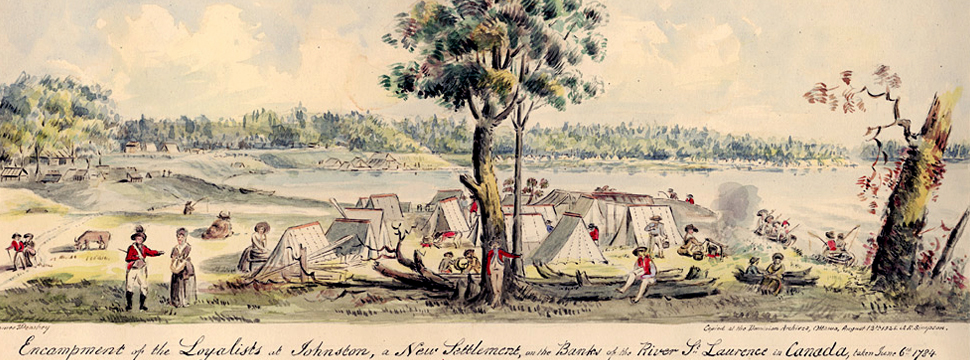 Copied at the Dominion Archives, Ottawa, August
Encampment of the Loyalists at Johnston, a New Settlement, on the Banks of the River St. Laurence in Canada, taken June 6th 1784.